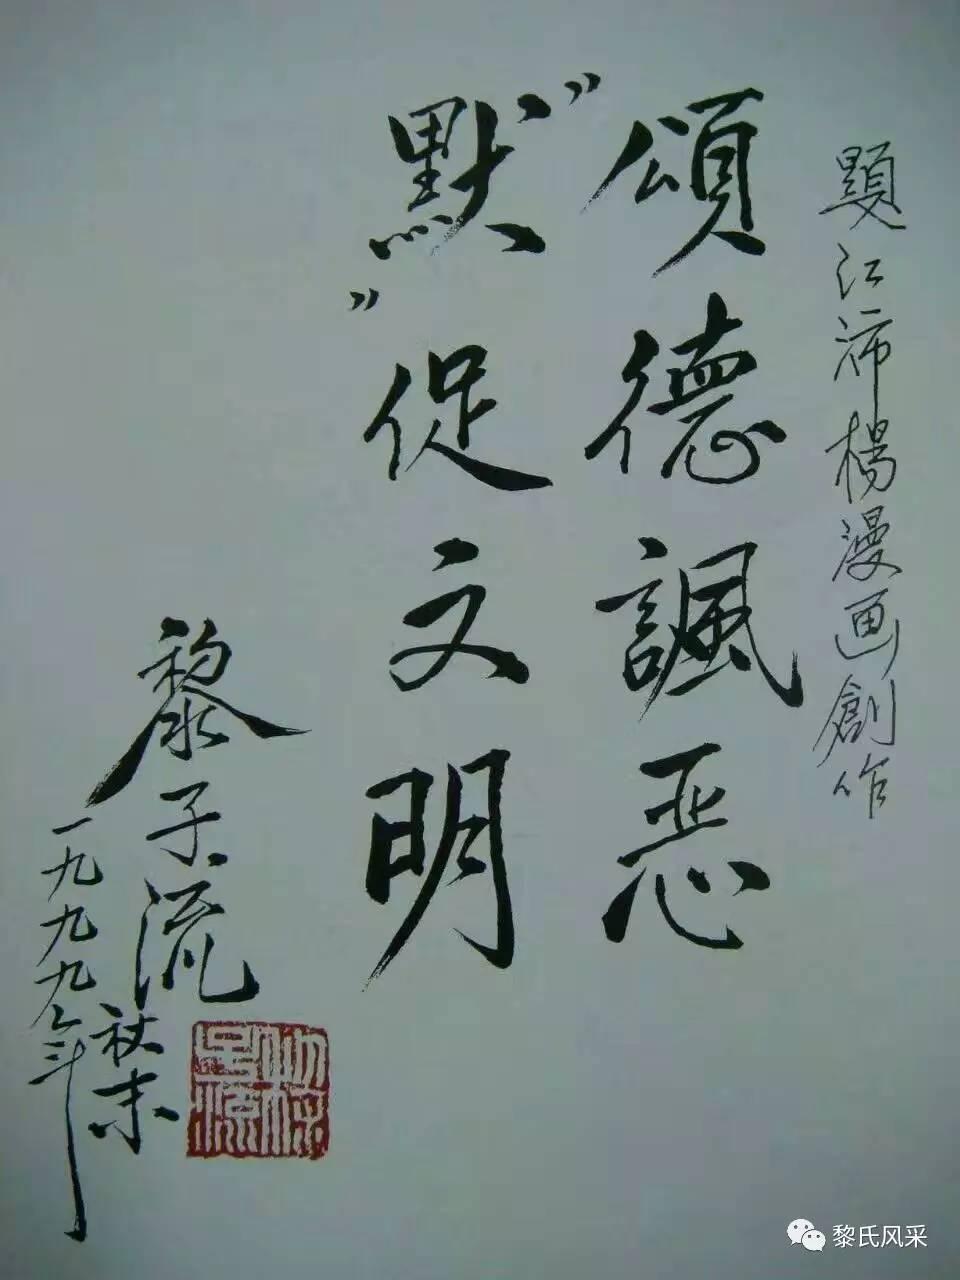 題江沛楊漫画創作
頌德諷恶
"默"促文明
黎子流
一九九九年
秋末
黎氏风采